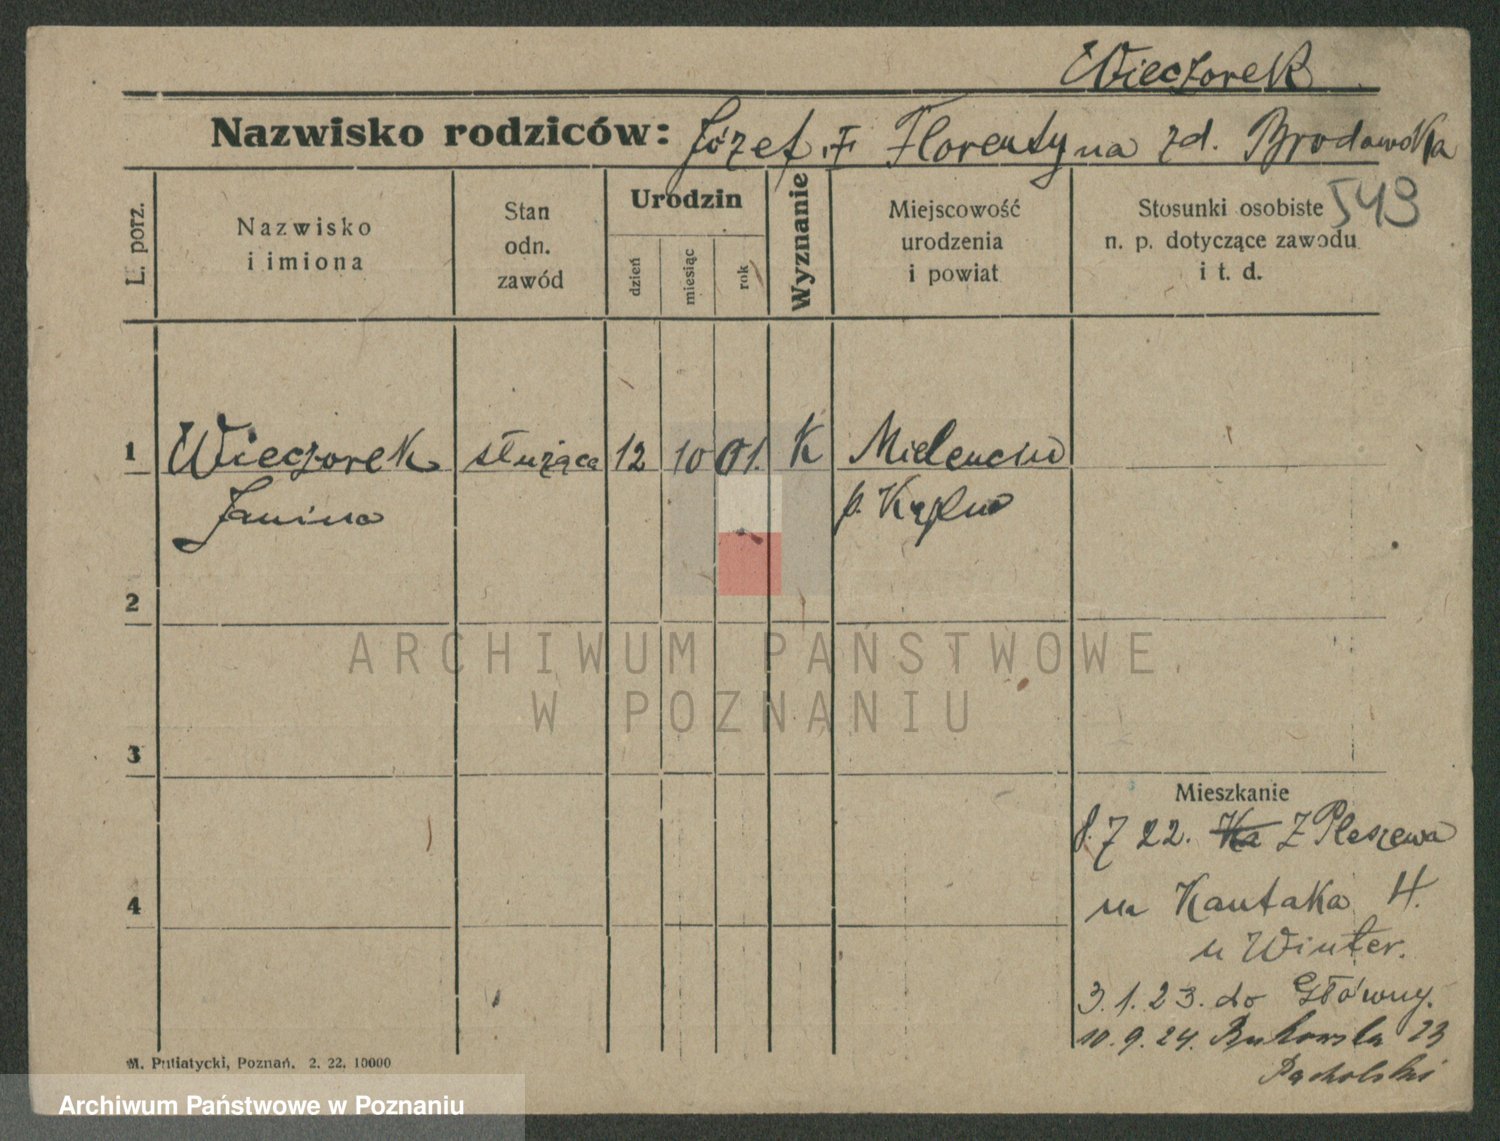 Wieczorek
Nazwisko rodziców: Józef i Florentyna zd. Brodawska
L. porz.
Nazwisko
i imiona
Stan
odn.
zawód
Urodzin
dzień
miesiąc
rok
Wyznanie
Miejscowość
urodzenia
i powiat
Stosunki osobiste
n. p. dotyczące zawodu
i t. d.
543
1 Wieczorek służąca 12 10 01. K Mielencin
Janina p. Kępno
2
ARCHIWUM PAŃSTWOWE
W POZNANIU
3
Mieszkanie
8.7 22. Ka Z Pleszewa
4
na Kantaka 4.
u Winter.
3.1.23. do Główny.
10.9.24. Bukowska 23
Pącholski
M. Putiatycki, Poznań. 2. 22. 10000
Archiwum Państwowe w Poznaniu